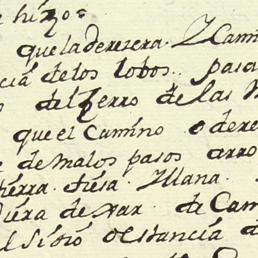 e hizo=
que la deresera. Y Cami
cia de los lobos.. pasa
o del Zerro de las M
que el Camino o dere
e de malos pasos arro
tierra tiesa. Y llana.
diera de var. de Cam
el sitio o estancia d